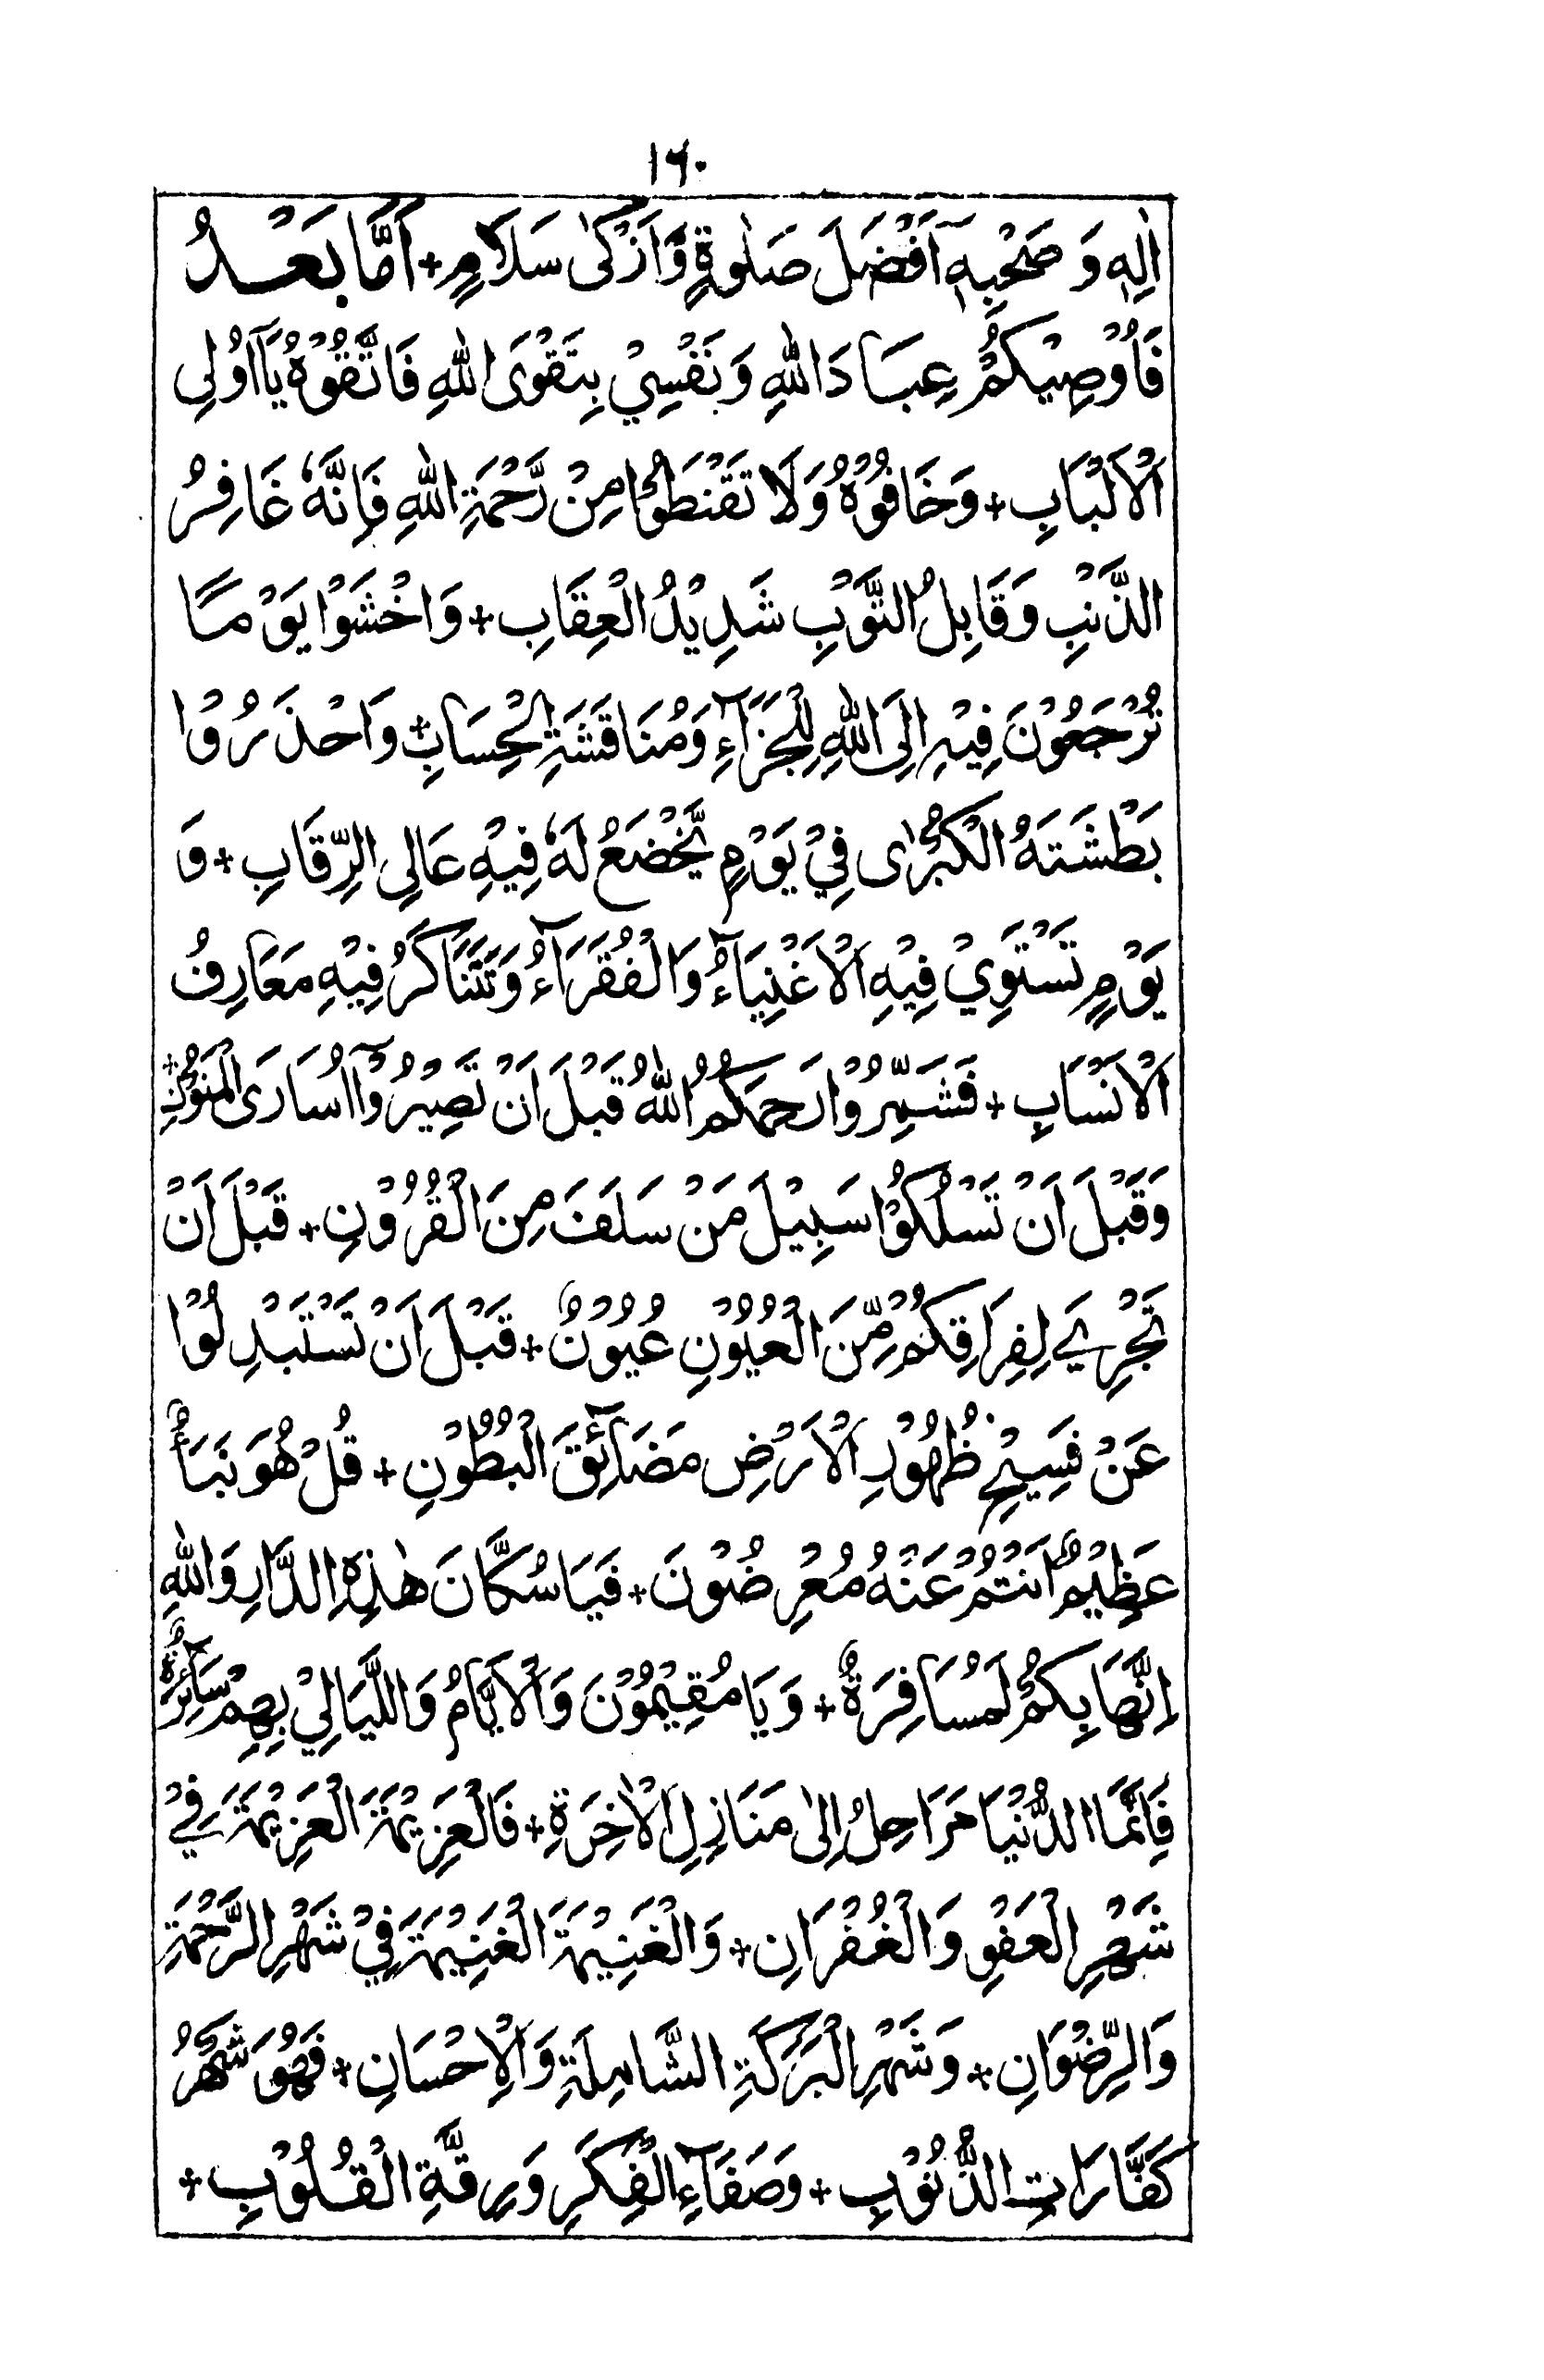 ١٦٠
اٰلِهٖ وَ صَحْبِهٖٓ اَفْضَلَ صَلٰوةٍ وَّاَزْكٰى سَلَامٍ + اَمَّا بَعْدُ
فَاُوْصِيْكُمْ عِبَادَ اللّٰهِ وَ نَفْسِيْ بِتَقْوَى اللّٰهِ فَاتَّقُوْهُ يَآاُولِى
الْاَلْبَابِ + وَخَافُوْهُ وَلَا تَقْنَطُوْا مِنْ رَّحْمَةِ اللّٰهِ فَاِنَّهٗ غَافِرُ
الذَّنْبِ وَقَابِلُ التَّوْبِ شَدِيْدُ الْعِقَابِ + وَاخْشَوْا يَوْمًا
تُرْجَعُوْنَ فِيْهِ اِلَى اللّٰهِ لِلْجَزَآءِ وَمُنَاقَشَةِ الْحِسَابِ + وَاحْذَرُوْا
بَطْشَتَهُ الْكُبْرٰى فِيْ يَوْمٍ يَّخْضَعُ لَهٗ فِيْهِ عَالِى الرِّقَابِ + وَ
يَوْمٍ تَسْتَوِيْ فِيْهِ الْاَغْنِيَآءُ وَالْفُقَرَآءُ وَتَتَنَاكَرُ فِيْهِ مَعَارِفُ
الْاَنْسَابِ + فَشَمِّرُوْا رَحِمَكُمُ اللّٰهُ قَبْلَ اَنْ تَصِيْرُوْٓا اُسَارَى الْمَنُوْنِ +
وَقَبْلَ اَنْ تَسْلُكُوْا سَبِيْلَ مَنْ سَلَفَ مِنَ الْقُرُوْنِ + قَبْلَ اَنْ
تَجْرِيَ لِفِرَاقِكُمْ مِّنَ الْعُيُوْنِ عُيُوْنٌ + قَبْلَ اَنْ تَسْتَبْدِلُوْا
عَنْ فَسِيْحِ ظُهُوْرِ الْاَرْضِ مَضَآئِقَ الْبُطُوْنِ + قُلْ هُوَ نَبَأٌ
عَظِيْمٌ اَنْتُمْ عَنْهُ مُعْرِضُوْنَ + فَيَا سُكَّانَ هٰذِهِ الدَّارِ وَاللّٰهِ
اِنَّهَا بِكُمْ لَمُسَافِرَةٌ + وَيَا مُقِيْمُوْنَ وَالْاَيَّامُ وَاللَّيَالِيْ بِهِمْ سَآئِرَةٌ
فَاِنَّمَا الدُّنْيَا مَرَاحِلُ اِلٰى مَنَازِلِ الْاٰخِرَةِ + فَالْعَزِيْمَةَ الْعَزِيْمَةَ فِيْ
شَهْرِ الْعَفْوِ وَالْغُفْرَانِ + وَالْغَنِيْمَةَ الْغَنِيْمَةَ فِيْ شَهْرِ الرَّحْمَةِ
وَالرِّضْوَانِ + وَشَهْرِ الْبَرَكَةِ الشَّامِلَةِ وَالْاِحْسَانِ + فَهُوَ شَهْرُ
كَفَّارَاتِ الذُّنُوْبِ + وَصَفَآءِ الْفِكَرِ وَرِقَّةِ الْقُلُوْبِ +